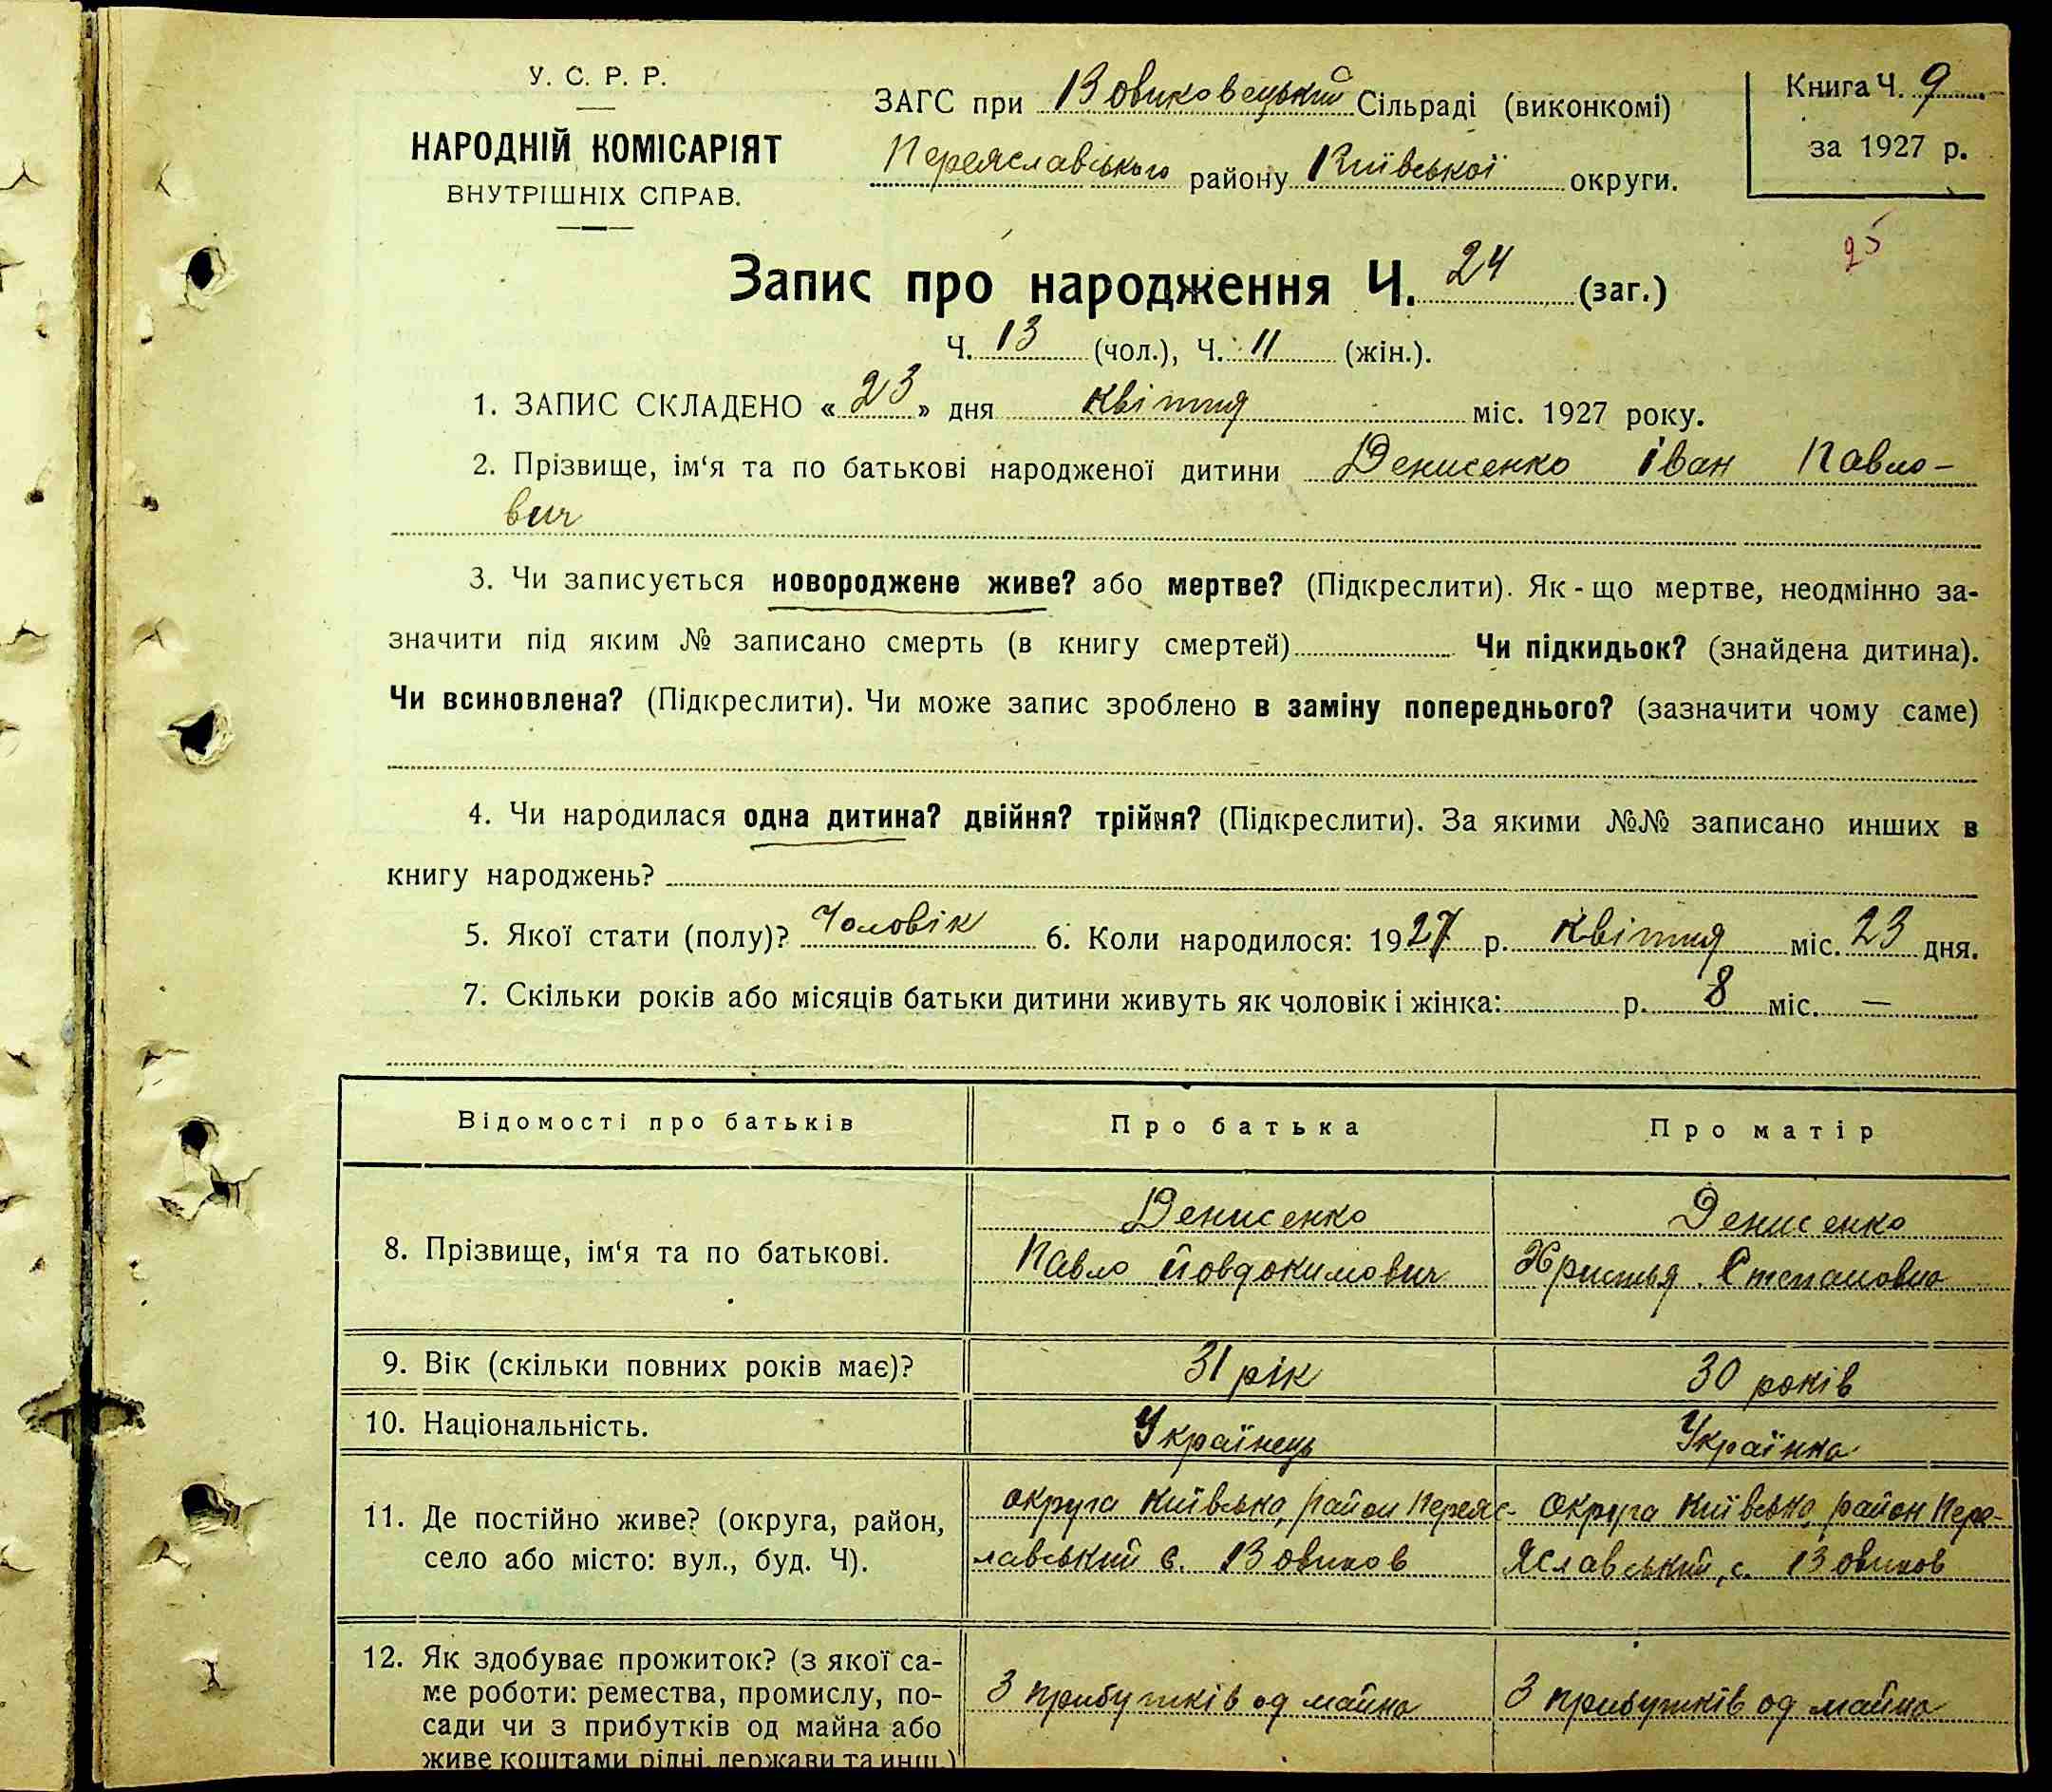 У. С. Р. Р.
НАРОДНІЙ КОМІСАРІЯТ
ВНУТРІШНІХ СПРАВ.
ЗАГС при Вовчковецький Сільраді (виконкомі)
Переяславського району Київської округи.
Книга Ч. 9
за 1927 р.
25
Запис про народження Ч. 24 (заг.)
Ч. 13 (чол.), Ч. 11 (жін.).
1. ЗАПИС СКЛАДЕНО « 23 » дня квітня міс. 1927 року.
2. Прізвище, ім‘я та по батькові народженої дитини Денисенко Іван Павло-
вич
3. Чи записується новороджене живе? або мертве? (Підкреслити). Як-що мертве, неодмінно за-
значити під яким № записано смерть (в книгу смертей) Чи підкидьок? (знайдена дитина).
Чи всиновлена? (Підкреслити). Чи може запис зроблено в заміну попереднього? (зазначити чому саме)
4. Чи народилася одна дитина? двійня? трійня? (Підкреслити). За якими №№ записано инших в
книгу народжень?
5. Якої стати (полу)? Чоловік 6. Коли народилося: 1927 р. квітня міс. 23 дня.
7. Скільки років або місяців батьки дитини живуть як чоловік і жінка: р. 8 міс. —
Відомості про батьків Про батька Про матір
8. Прізвище, ім‘я та по батькові.
Денисенко
Павло Йовдокимович
Денисенко
Христья Степановна
9. Вік (скільки повних років має)? 31 рік 30 років
10. Національність. Українець Українка
11. Де постійно живе? (округа, район,
село або місто: вул., буд. Ч).
округа Київська, район Переяс-
лавський с. Вовчков
Округа Київська, район Пере-
яславський, с. Вовчков
12. Як здобуває прожиток? (з якої са-
ме роботи: ремества, промислу, по-
сади чи з прибутків од майна або
живе коштами рідні, держави та инш.)
З прибутків од майна
З прибутків од майна